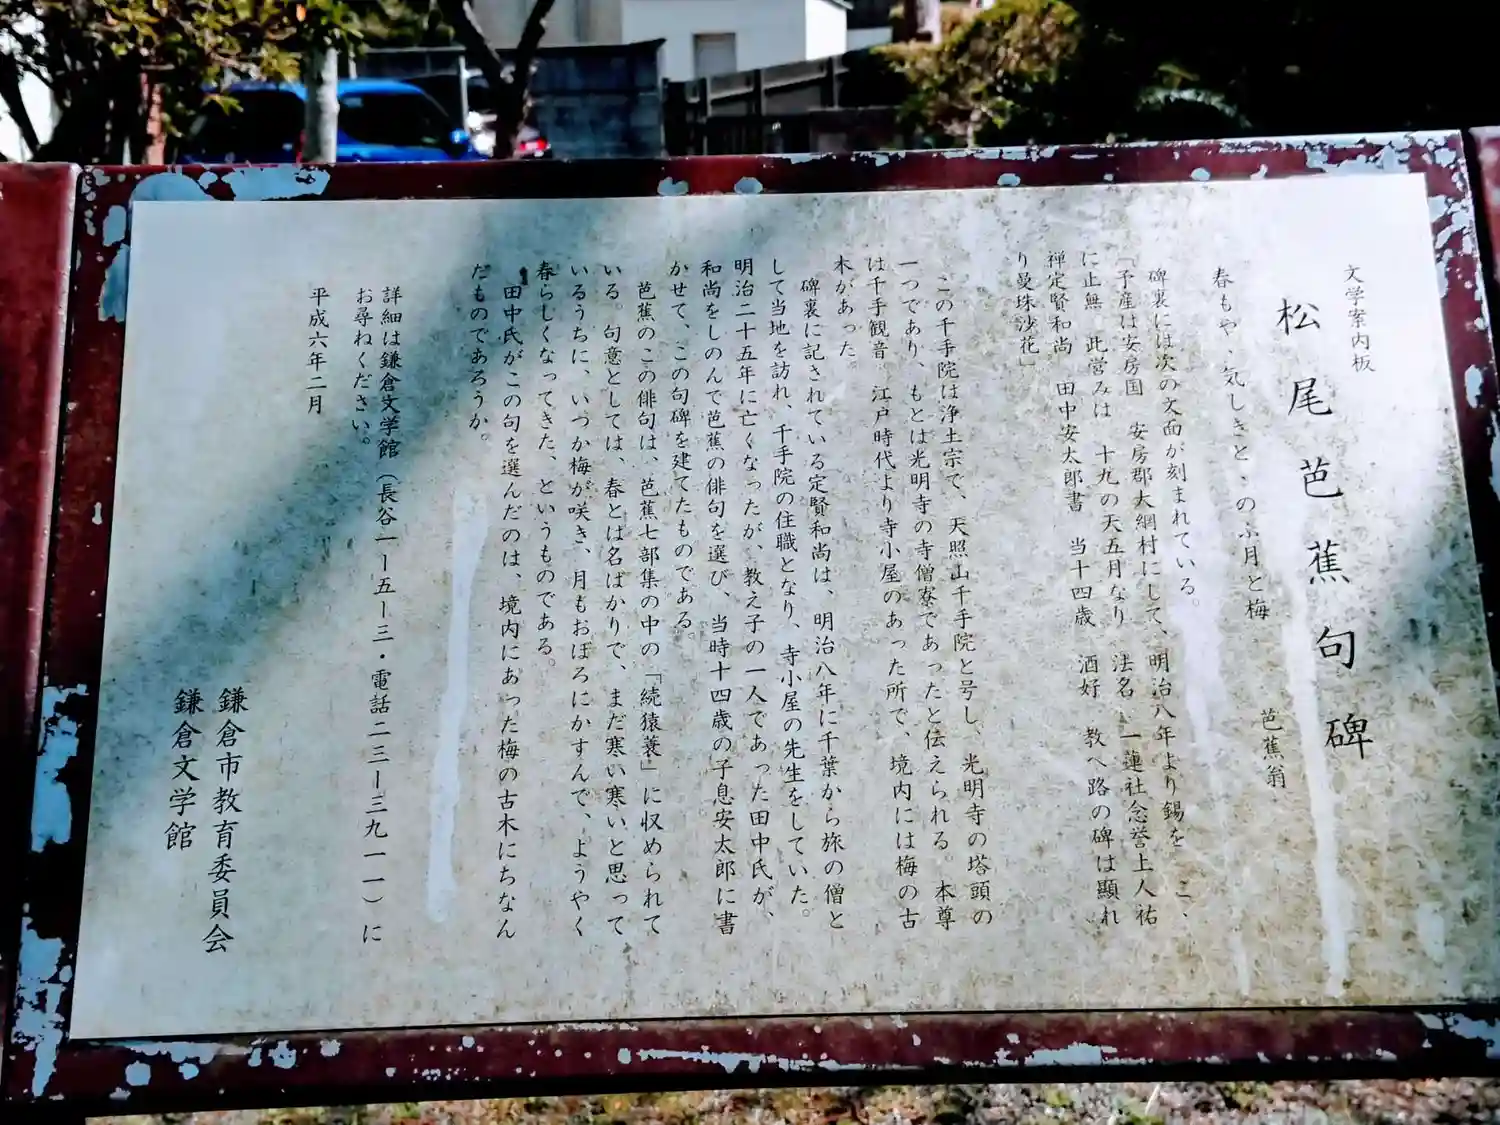 文学案内板
松尾芭蕉句碑
春もやゝ気しきとゝのふ月と梅　芭蕉翁
碑裏には次の文面が刻まれている。
「予産は安房国　安房郡大網村にして、明治八年より錫をこゝ
に止無　此営みは　十九の天五月なり　法名　一蓮社念誉上人祐
禅定賢和尚　田中安太郎書　当十四歳　酒好　教へ路の碑は顕れ
り曼珠沙花」
この千手院は浄土宗で、天照山千手院と号し、光明寺の塔頭の
一つであり、もとは光明寺の寺僧寮であったと伝えられる。本尊
は千手観音　江戸時代より寺小屋のあった所で、境内には梅の古
木があった。
碑裏に記されている定賢和尚は、明治八年に千葉から旅の僧と
して当地を訪れ、千手院の住職となり、寺小屋の先生をしていた。
明治二十五年に亡くなったが、教え子の一人であった田中氏が、
和尚をしのんで芭蕉の俳句を選び、当時十四歳の子息安太郎に書
かせて、この句碑を建てたものである。
芭蕉のこの俳句は、芭蕉七部集の中の「続猿蓑」に収められて
いる。句意としては、春とは名ばかりで、まだ寒い寒いと思って
いるうちに、いつか梅が咲き、月もおぼろにかすんで、ようやく
春らしくなってきた、というものである。
田中氏がこの句を選んだのは、境内にあった梅の古木にちなん
だものであろうか。
詳細は鎌倉文学館（長谷一ー五ー三・電話二三ー三九一一）に
お尋ねください。
平成六年二月
鎌倉市教育委員会
鎌倉文学館